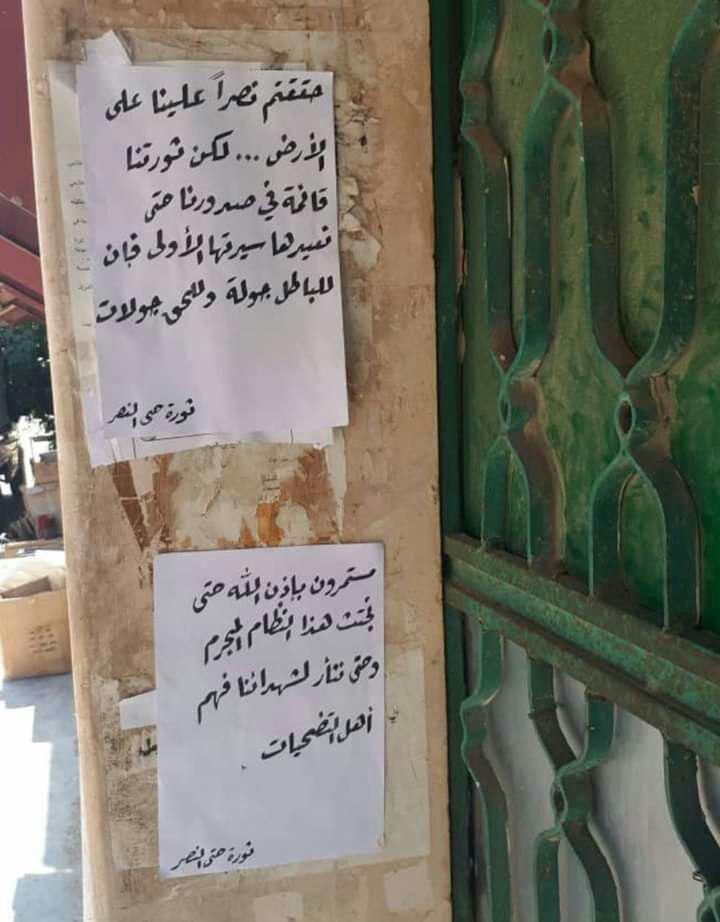 حققتم نصراً علينا على
الأرض ... لكن ثورتنا
قائمة في صدورنا حتى
نعيدها سيرتها الأولى فإن
للباطل جولة وللحق جولات
ثورة حتى النصر
مستمرون بإذن الله حتى
نجتث هذا النظام المجرم
وحتى نثأر لشهدائنا فهم
أهل التضحيات
ثورة حتى النصر